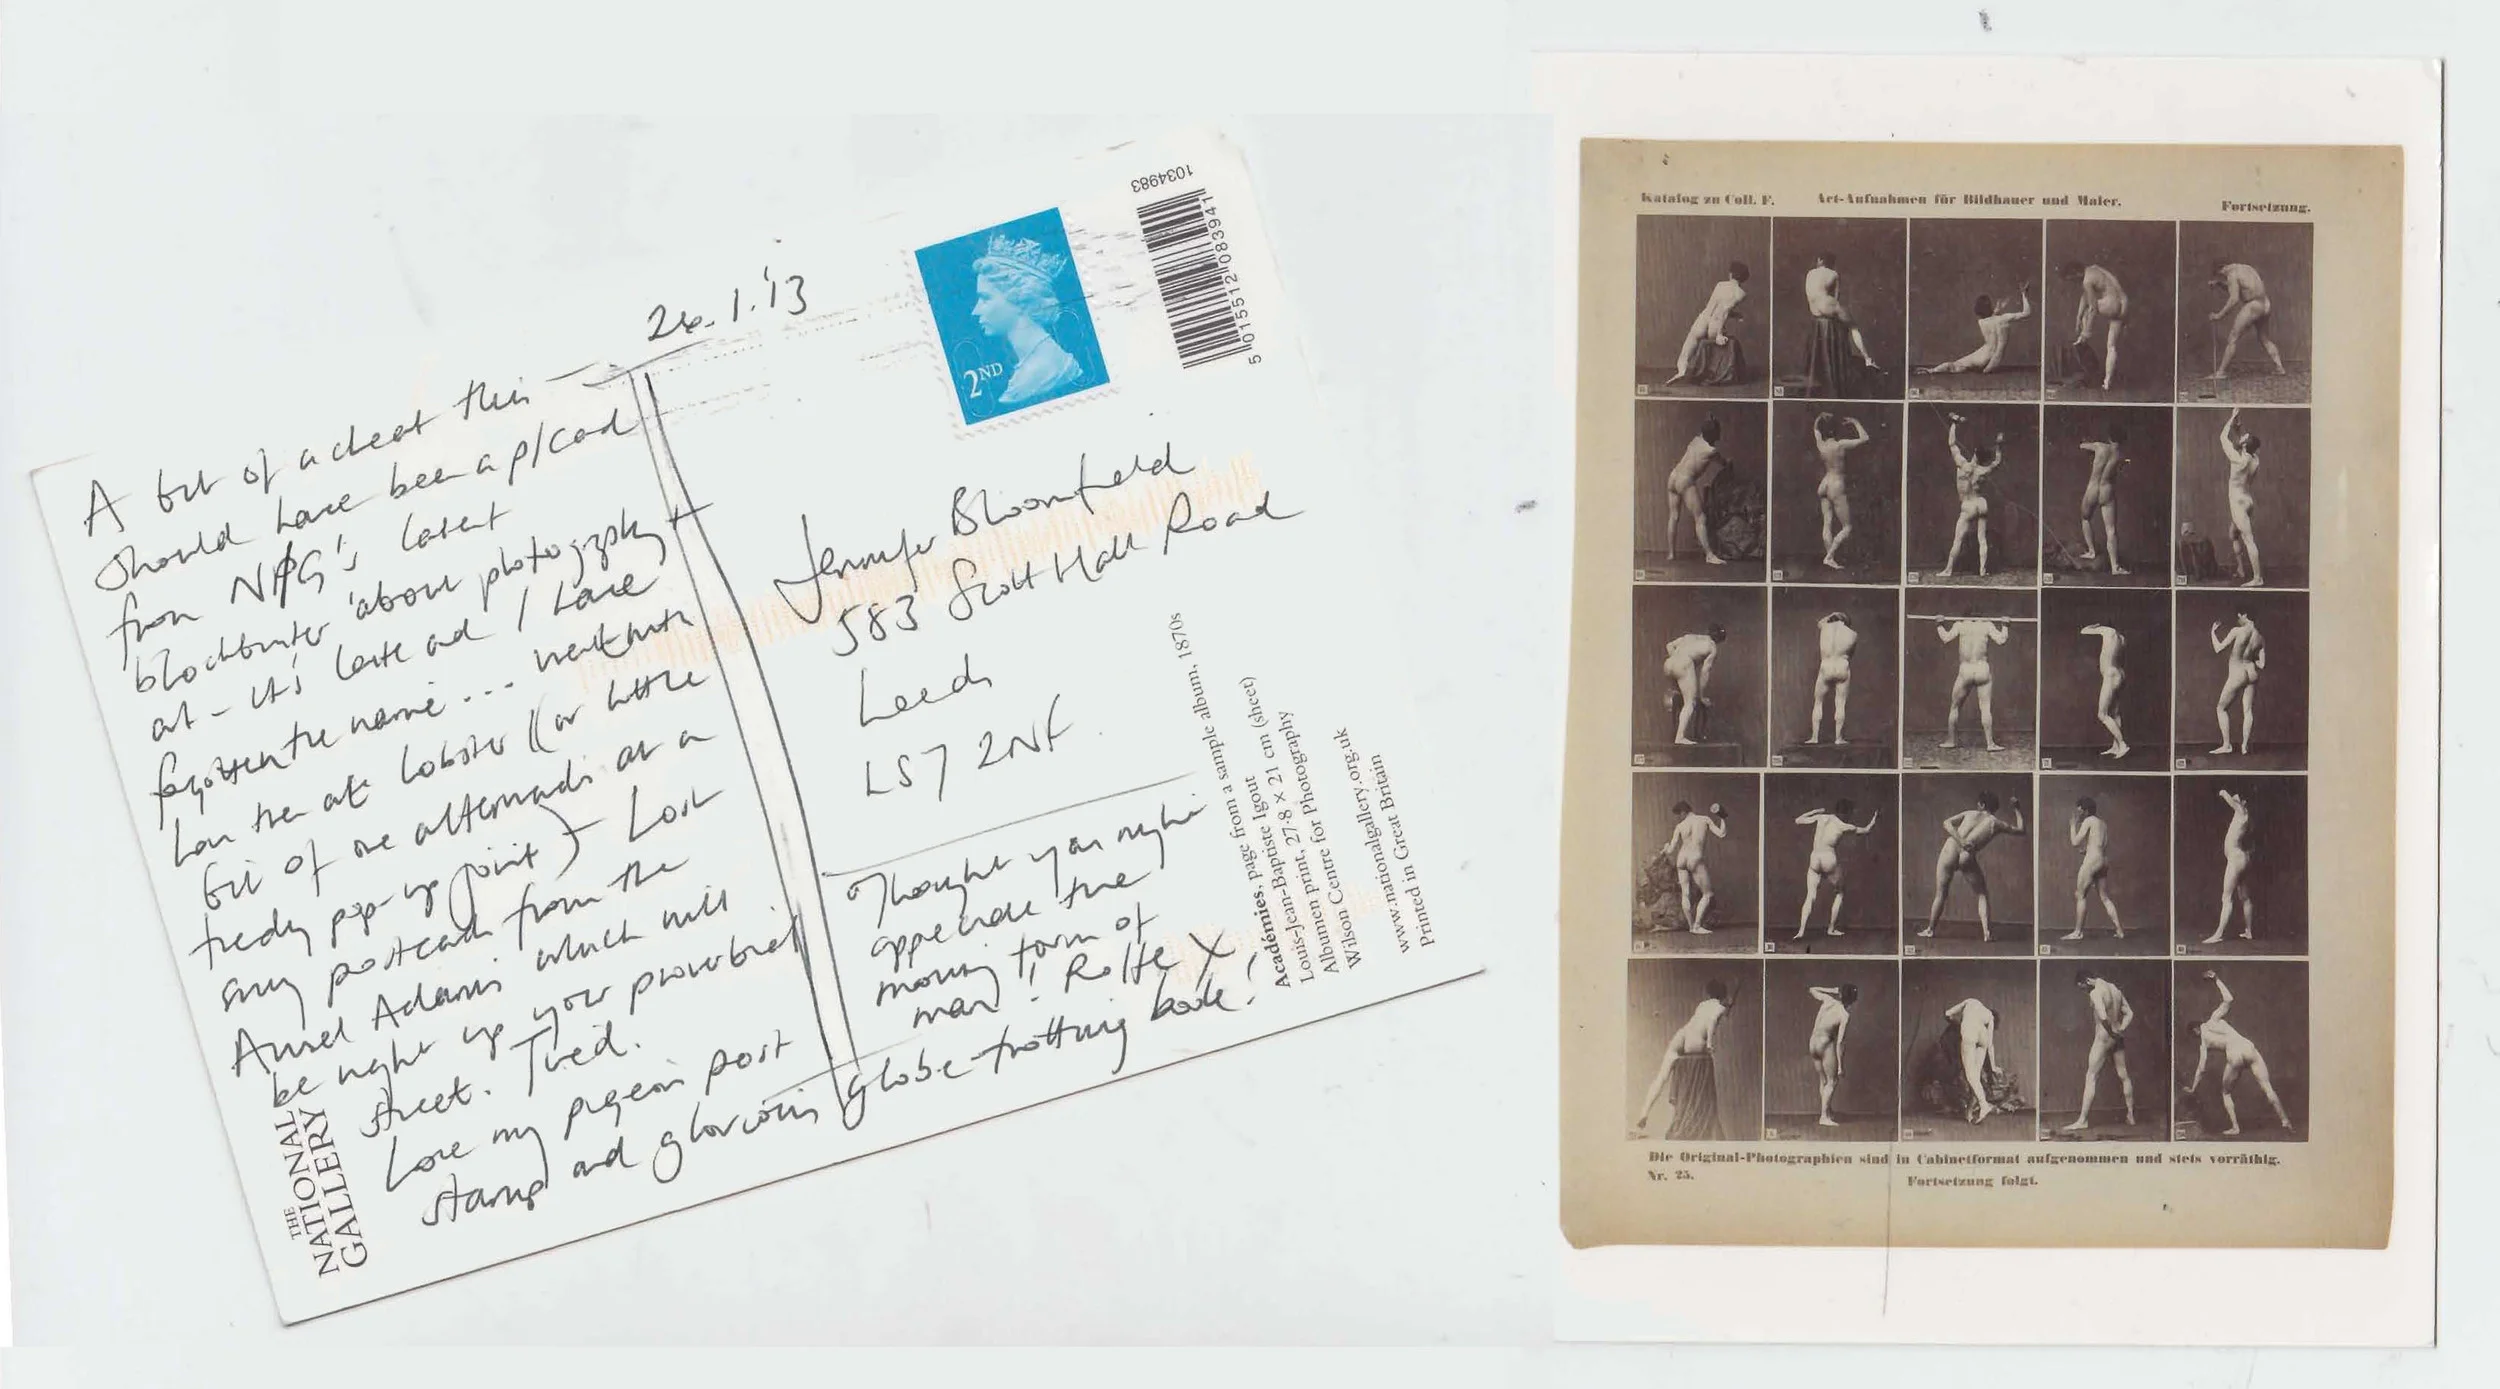 26.1.'13
A bit of a cheat this –
should have been a p/card
from NPG's latest
blockbuster 'about photography +
art – it's late and I have
forgotten the name... went with
Lou then ate lobster ((or little
bit of one afterwards at a
trendy pop-up joint) + Lost
my postcards from the
Ansel Adams which will
be right up your proverbial
street. Tired.
Love my pigeon post
stamp and glorious globe-trotting book!
THE
NATIONAL
GALLERY
2ND
1034983
5 015512 083941
Jennifer Bloomfield
583 Scott Hall Road
Leeds
LS7 2NF.
Thought you might
appreciate the
moving form of
man! Rolfe X
Académies, page from a sample album, 1870s
Louis-Jean-Baptiste Igout
Albumen print, 27·8 × 21 cm (sheet)
Wilson Centre for Photography
www.nationalgallery.org.uk
Printed in Great Britain
Katalog zu Coll. F. Act-Aufnahmen für Bildhauer und Maler. Fortsetzung.
Die Original-Photographien sind in Cabinetformat aufgenommen und stets vorräthig.
Nr. 25. Fortsetzung folgt.